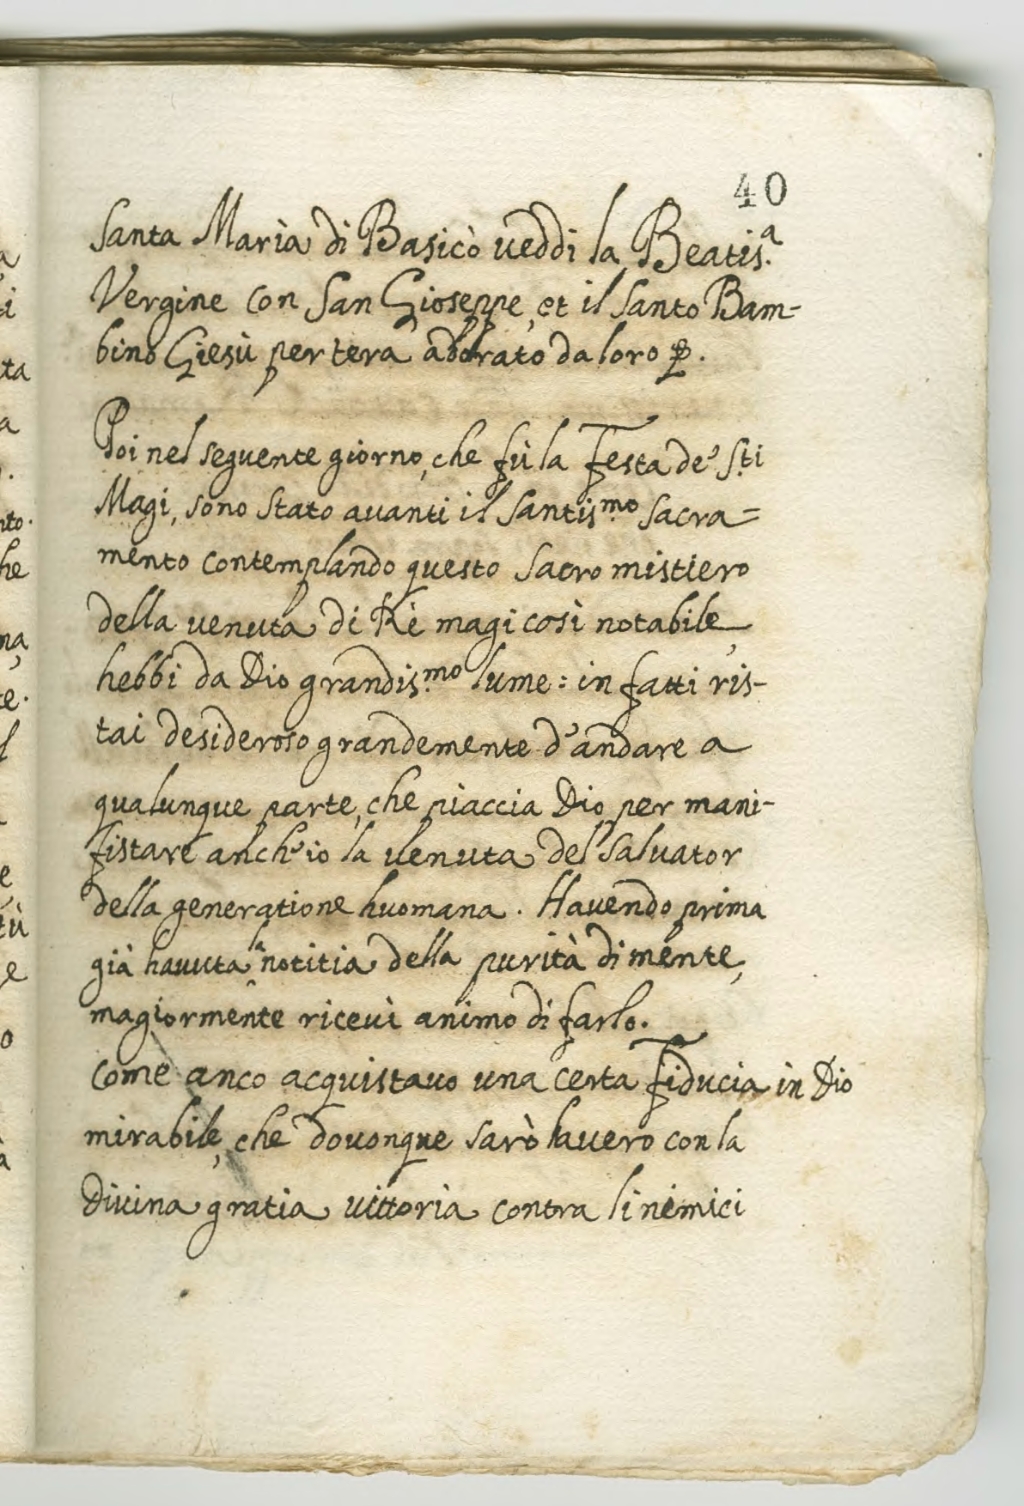 40
Santa Maria di Basicò ueddi la Beatis.ª
Vergine con San Gioseppe, et il Santo Bam-
bino Giesù per tera adorato da loro
Poi nel seguente giorno, che fù la Festa de' S.ti
Magi, sono stato auanti il Santis.mo Sacra=
mento contemplando questo Sacro mistiero
della uenuta di Rè magi così notabile,
hebbi da Dio grandis.mo lume: in fatti ris-
tai desideroso grandemente d'andare a
qualunque parte, che piaccia Dio per mani-
fistare anch'io la uenuta del Saluator
della generatione huomana. Hauendo prima
già hauuta la notitia della purità di mente,
magiormente riceuì animo di farlo.
Come anco acquistauo una certa Fiducia in Dio
mirabile, che douonque sarò hauero con la
Diuina gratia uittoria contra li nemici